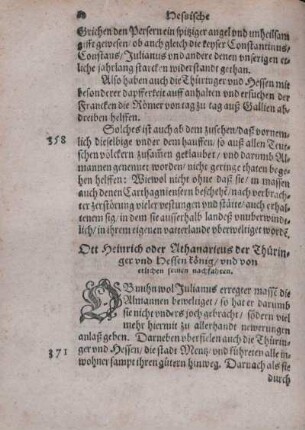 Hessische
Grichen den Persern ein spitziger angel vnd vnheilsam
gifft gewesen / ob auch gleich die keyser Constantinus /
Constans / Julianus vnd andere denen vnserigen et-
liche jahrlang starcken widerstandt gethan.
Also haben auch die Thüringer vnd Hessen mit
besonderer dapfferkeit auff anhalten vnd ersuchen der
Francken die Römer von tag zu tag auß Gallien ab-
treiben helffen.
Solches ist auch ab dem zusehen / daß vornem-
358
lich dieselbige vnder dem hauffen / so auß allen Teut-
schen völckern zusamen geklaubet / vnd darumb Al-
mannen genennet worden / nicht geringe thaten bege-
hen helffen: Wiewol nicht ohne daß sie in massen
auch denen Carthaginensern beschehē / nach verbrach-
ter zerstörung vieler vestungen vnd stätte / auch erhal-
tenem sig / in dem sie ausserhalb landes vnuberwind-
lich / in ihrem eigenen vatterlande vberweltiget wordē.
Ott Heinrich oder Athanaricus der Thürin-
ger vnd Hessen könig / vnd von
etlichen seinen nachfahren.
Ob nuhn wol Julianus erregter massē die
Almannen beweltiget / so hat er darumb
sie nicht vnders joch gebracht / sondern viel
mehr hiermit zu allerhande newerungen
anlaß geben. Darneben vberfielen auch die Thürin-
371
ger vnd Hessen / die stadt Mentz / vnd führeten alle in-
wohner sampt ihren gütern hinweg. Darnach als sie
durch